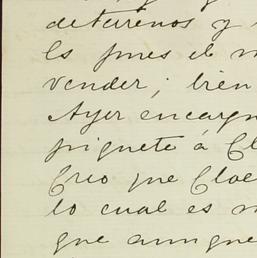 de terrenos y
es pues el
vender; bien
Ayer encargu
piquete á Cl
Creo que Cloe
lo cual es
que aunque